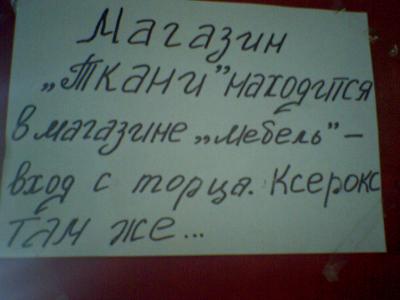 Магазин
„Ткани" находится
в магазине „мебель" –
вход с торца. Ксерокс
там же...